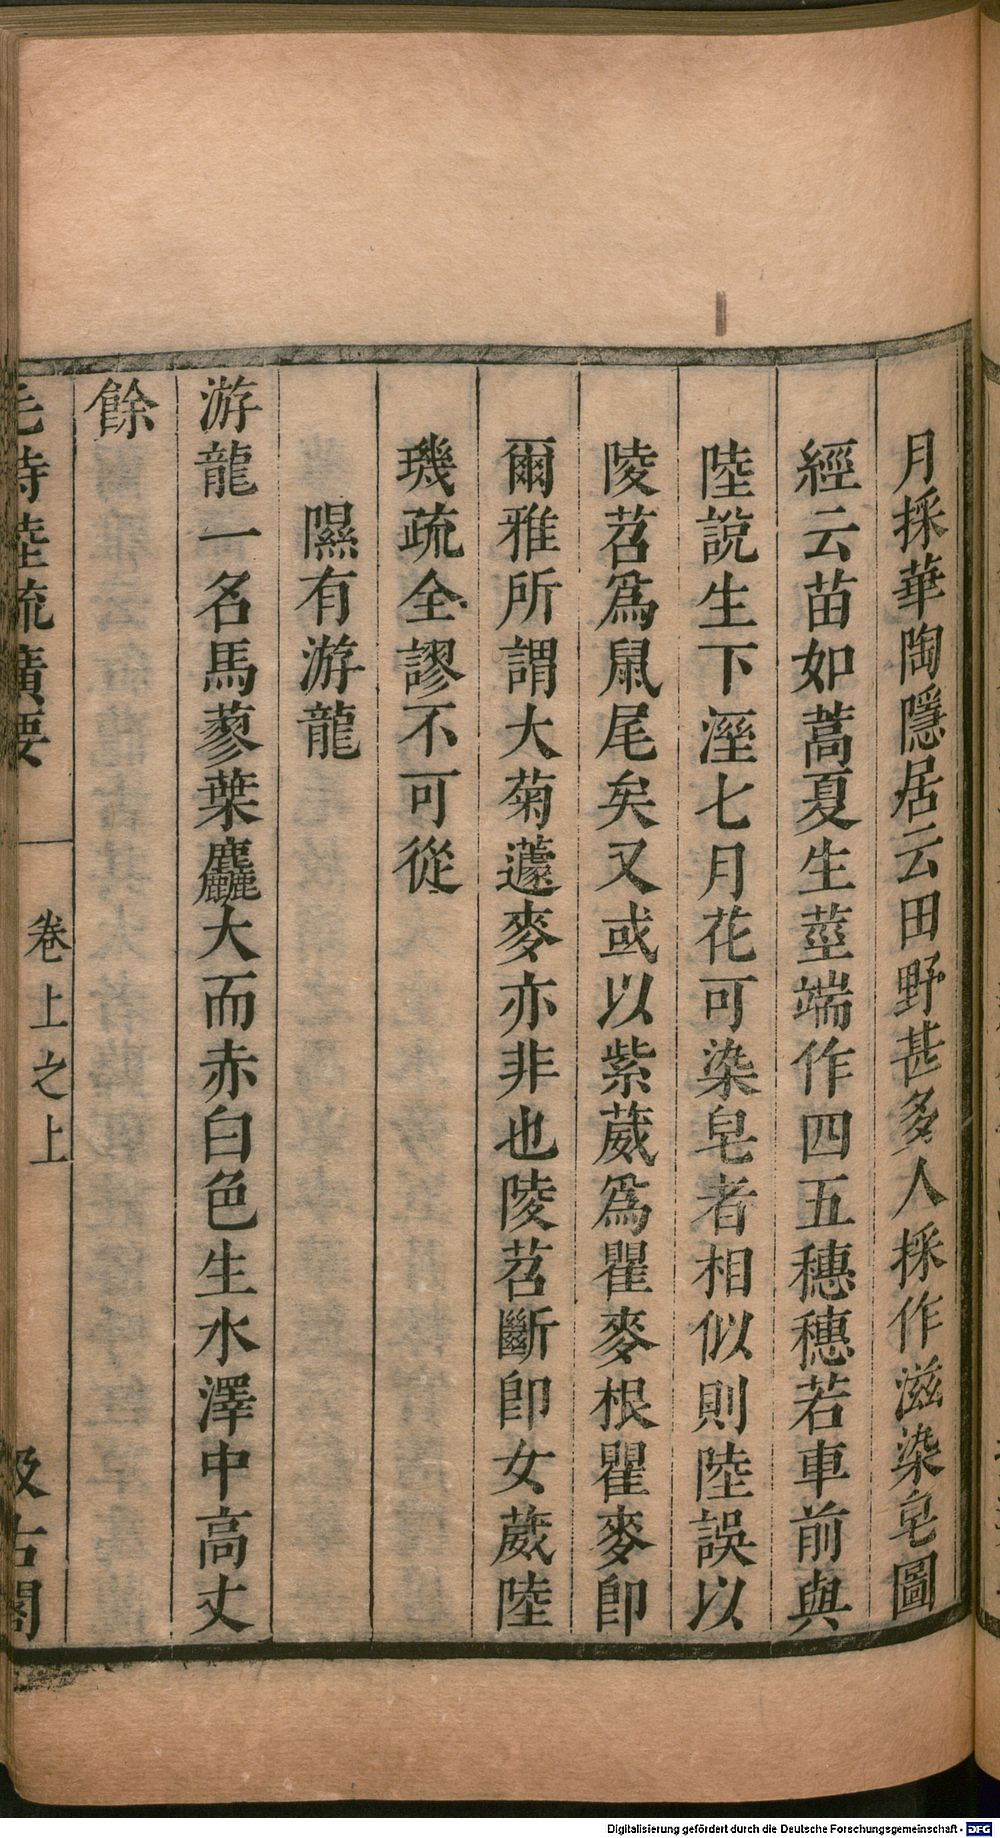 月採華陶隱居云田野甚多人採作滋染皂圖
經云苗如蒿夏生莖端作四五穗穗若車前與
陸說生下溼七月花可染皂者相似則陸誤以
陵苕爲鼠尾矣又或以紫葳爲瞿麥根瞿麥即
爾雅所謂大菊蘧麥亦非也陵苕斷即女葳陸
璣疏全謬不可從
隰有游龍
游龍一名馬蓼葉麤大而赤白色生水澤中高丈
餘
毛詩陸疏廣要
卷上之上
汲古閣
Digitalisierung gefördert durch die Deutsche Forschungsgemeinschaft - DFG